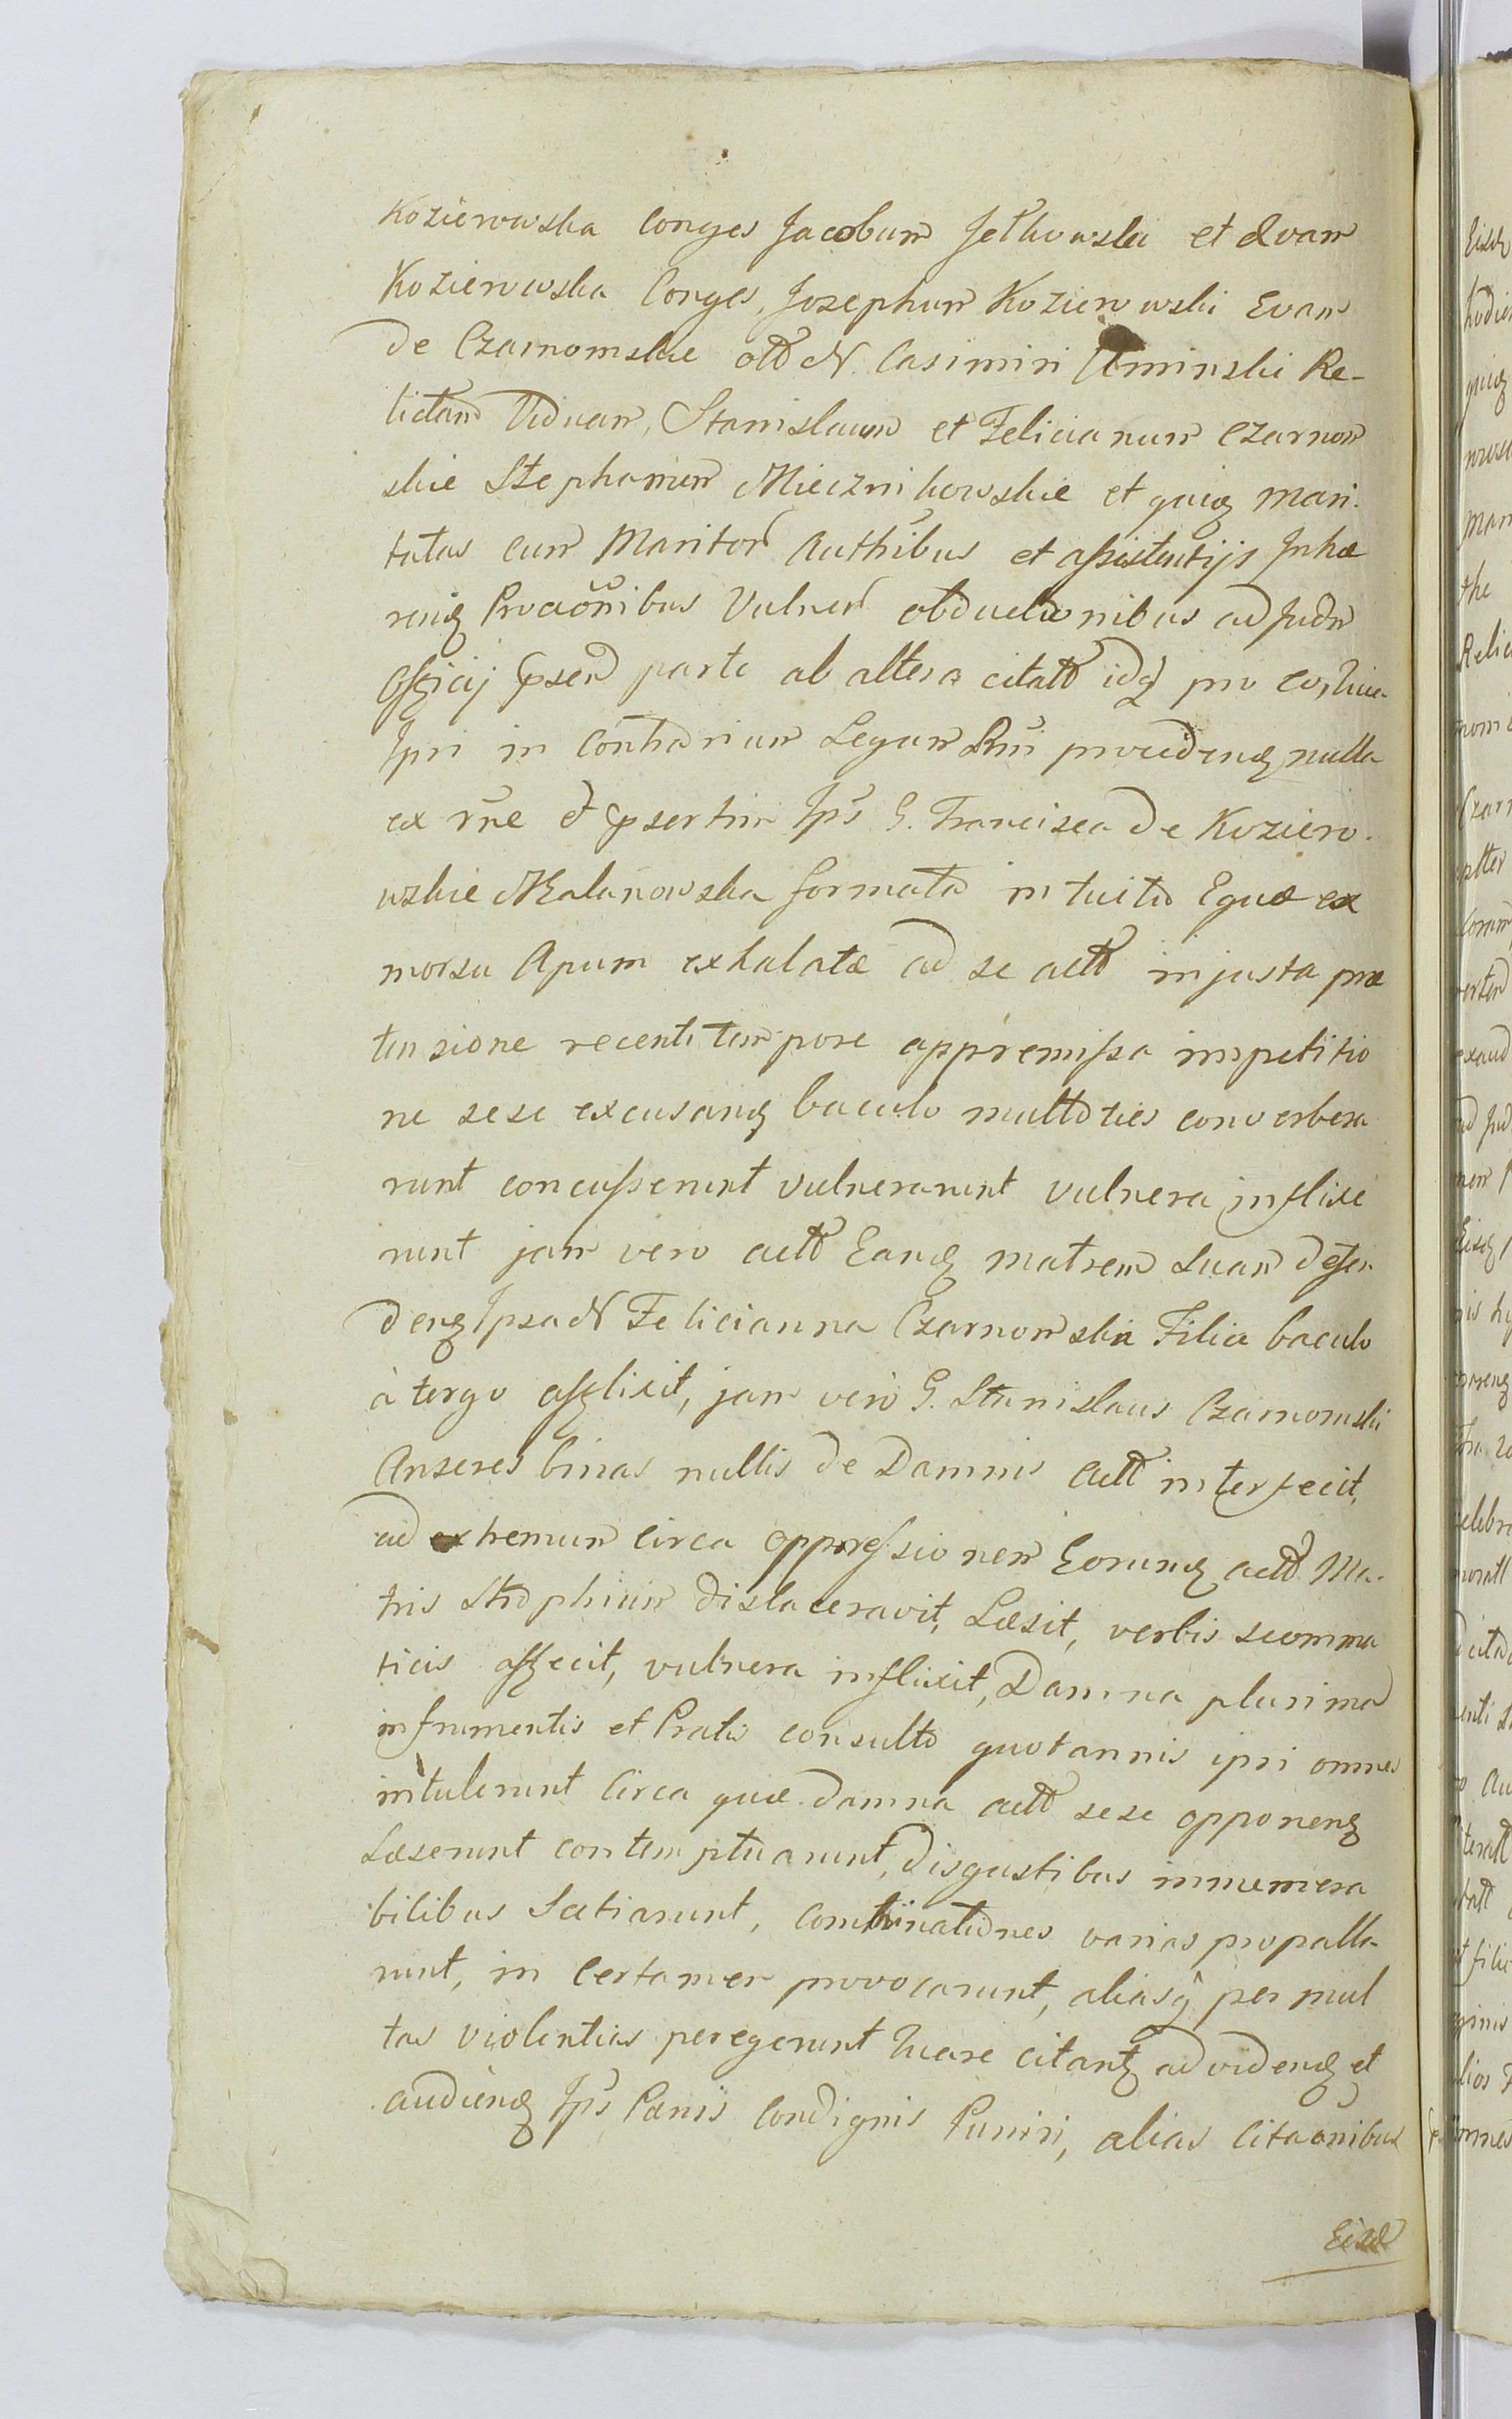 Kozierowska Conges Jacobum Jethowski et Evam
Kozierowska Conges, Josephum Kozierowski Evam
de Czarnomskie olt N. Casimiri Uminski Re-
lictam Viduam, Stanislaum et Felicianam Czarnom
skie Stephanum Miecznikowskie et quiq mari-
tatas cum Maritor Authibus et assistentijs Inhæ
renq Procãonibus Vulner obductionibus ad Judm
Officij pnsen parte ab altera citatt idq pro eo, quia
Ipsi in Contrarium Legum Rni procedenq nulla
ex rne et psertim Ips G. Francisca de Koziero-
wskie Makanowska formata intuitu Equæ ex
morsu Apum exhalatæ ad se actt injusta præ
tensione recenti tempore appremissa impetitio
ne sese excusanq baculo multoties converbera
runt concusserunt vulnerarunt vulnera inflixe
runt jam vero actt Eanq matrem Suam defen
denq Ipsa N Felicianna Czarnomska Filia baculo
à tergo afflixit, jam vero G. Stanislaus Czarnomski
Anseres binas nullis de Damnis actt interfecit,
ad extremum circa oppressionem Eorunq actt Ma-
tris Strophium dislaceravit, Læsit, verbis scomma
ticis affecit, vulnera inflixit, Damna plurima
in frumentis et Pratis consulto quotannis ipsi omnes
intulerunt Circa quæ damna actt sese opponenq
Læserunt contemptuarunt, disgustibus innumera
bilibus Satiarunt, Comminationes varias propalla
runt, in Certamen provocarunt, aliasq per mul
tas violentias peregerunt Quare citantq ad videnq et
audienq Ips Pænis Condignis Puniri, alias Citaonibus
Eisd